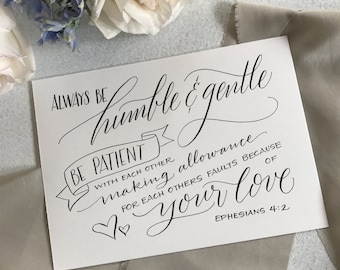 ALWAYS BE
humble & gentle
BE PATIENT
WITH EACH OTHER
making allowance
FOR EACH OTHERS FAULTS BECAUSE
OF
your love
EPHESIANS 4:2